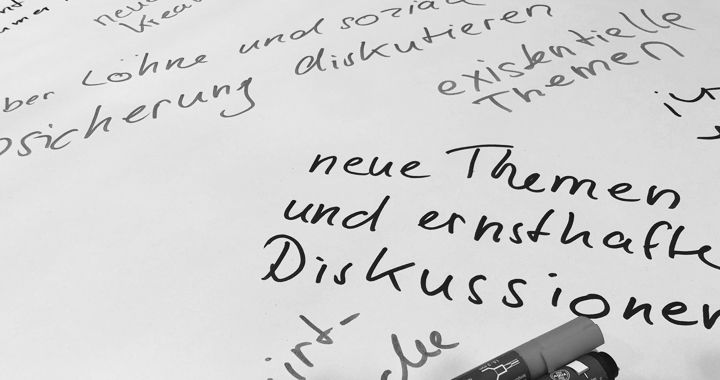 neue
ber Löhne und sozia
sicherung diskutieren
existentielle
Themen
neue Themen
und ernsthafte
Diskussionen
irt-
che